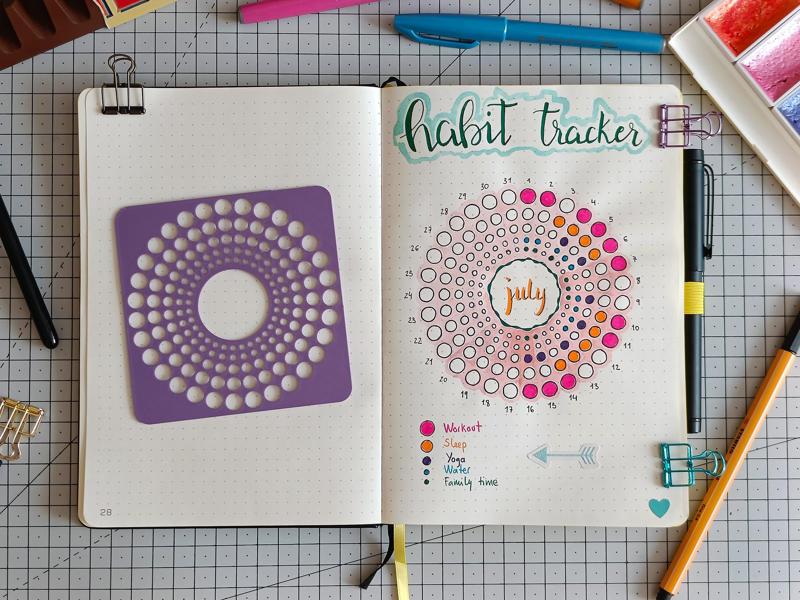 habit tracker
29 30 31 1 2 3 4 5 6 7 8 9 10 11 12 13 14 15 16 17 18 19 20 21 22 23 24 25 26 27 28
july
Workout
Sleep
Yoga
Water
Family time
28